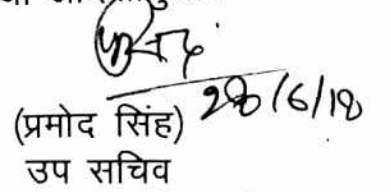 28/6/18
(प्रमोद सिंह)
उप सचिव